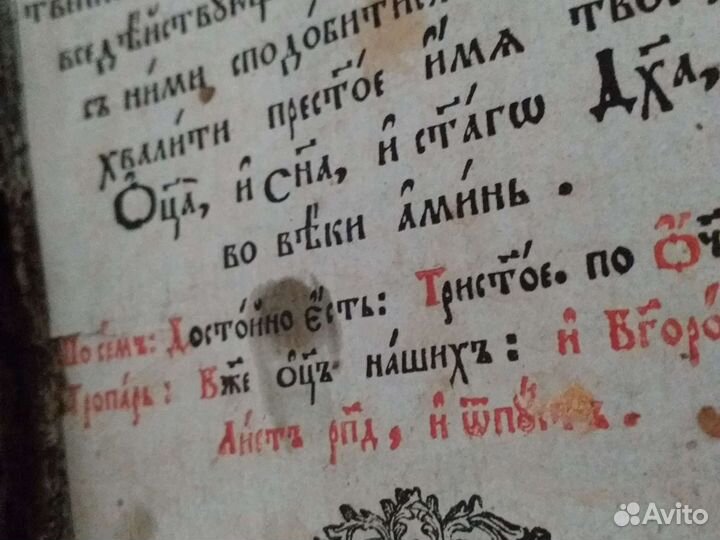 вседѣ́йствꙋ
съ ни́ми сподо́битисѧ
хвали́ти прест҃о́е и҆́мѧ тво
Ѻ҆ц҃а̀, и҆ сн҃а, и҆ ст҃а́гѡ дх҃а,
во вѣ́ки а҆ми́нь.
По се́мъ: Досто́йно є҆́сть: Трист҃о́е. по Ѻ҆́ч
Тропа́рь: Бж҃е ѻ҆ц҃ъ на́шихъ: и҆ Бг҃оро́
Ли́стъ рп҃д, и҆ ѿпꙋ́стъ.
Avito